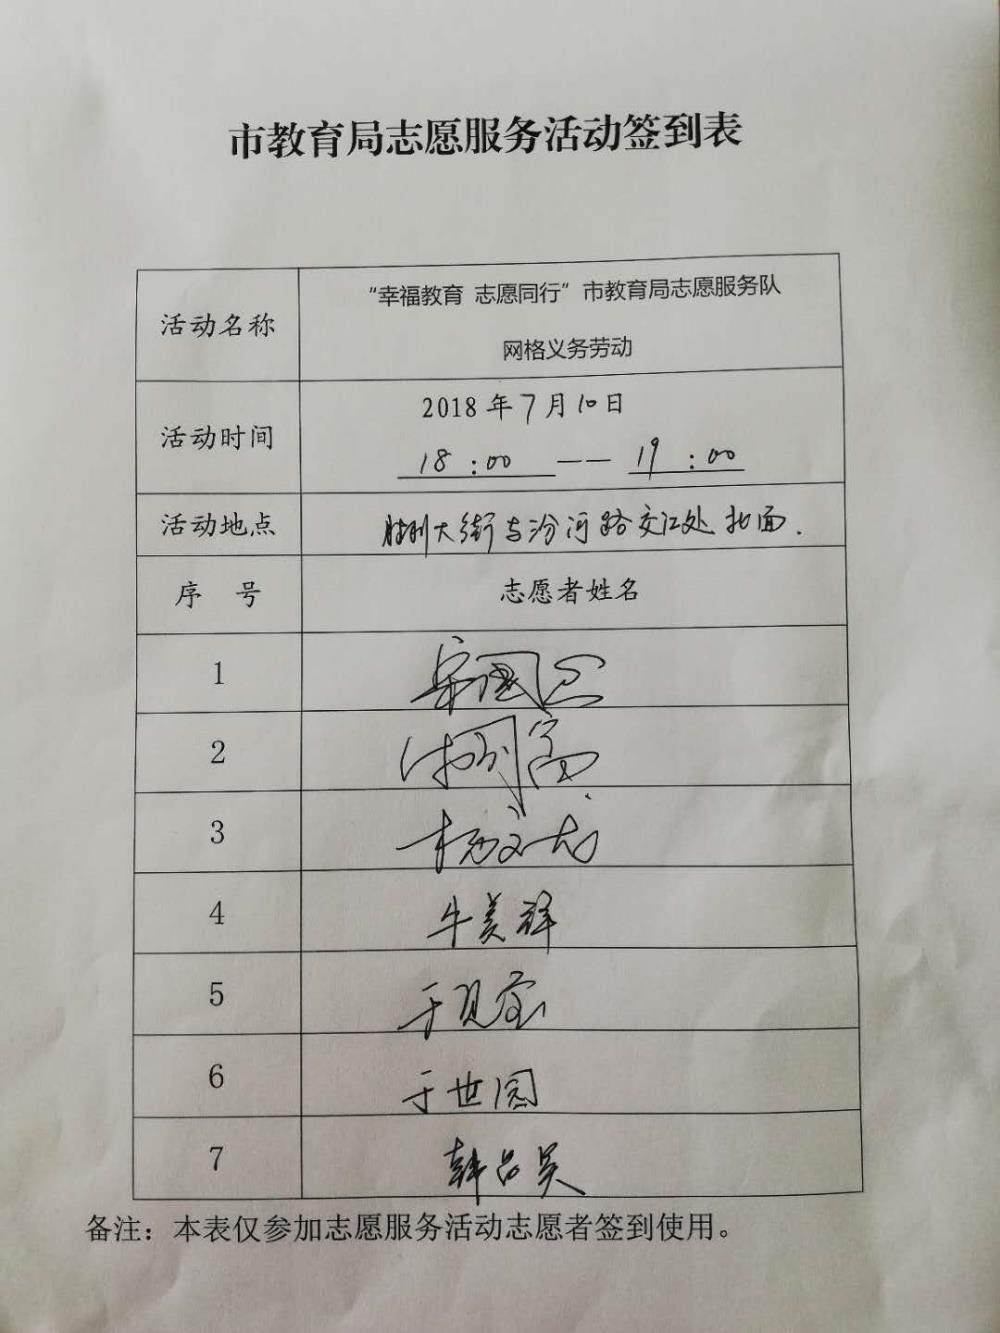 市教育局志愿服务活动签到表
活动名称
“幸福教育 志愿同行”市教育局志愿服务队
网格义务劳动
活动时间
2018年7月10日
18:00 —— 19:00
活动地点
胶州大街与汾河路交汇处北面.
序 号
志愿者姓名
1
2
3 杨文龙
4 牛美祥
5 于
6 于世园
7 韩
备注：本表仅参加志愿服务活动志愿者签到使用。